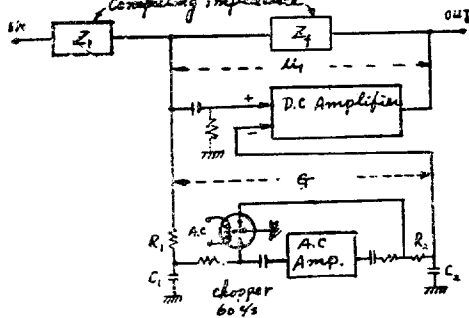 Computing impedance
in
Z₁
Zf
out
μ₁
+
D.C Amplifier
-
G
R₁
A.C
A.C
Amp.
R₂
C₁
C₂
chopper
60 c/s